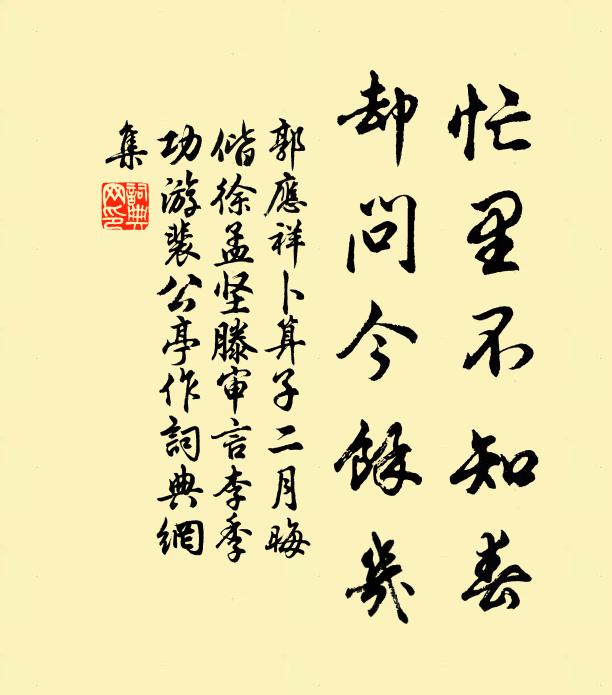 忙里不知春
却问今餘幾
郭應祥卜算子二月晦
偕徐孟坚滕审言李季
功游裴公亭作詞典網
集
詞典
网印